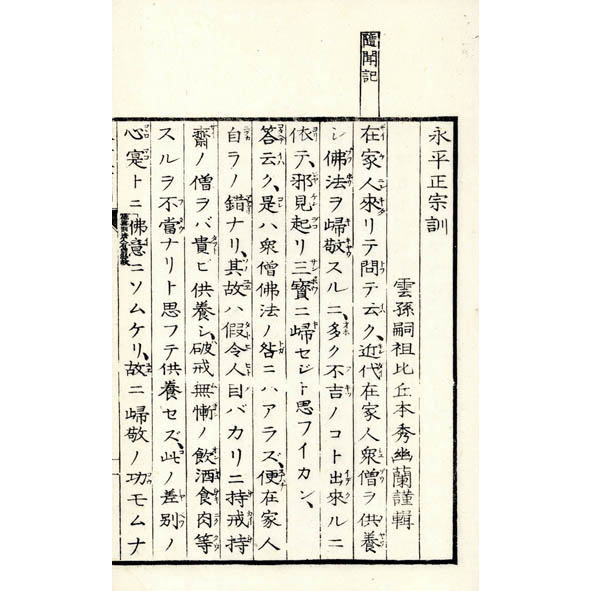 隨聞記
永平正宗訓
雲孫嗣祖比丘本秀幽蘭謹輯
在家人來リテ問テ云ク、近代在家人衆僧ヲ供養
シ佛法ヲ歸敬スルニ、多ク不吉ノコト出來ルニ
依テ、邪見起リ三寳ニ歸セジト思フイカン、
答云ク、是ハ衆僧佛法ノ咎ニハアラズ、便在家人
自ラノ錯ナリ、其故ハ假令人目バカリニ持戒持
齋ノ僧ヲバ貴ビ供養シ、破戒無慚ノ飲酒食肉等
スルヲ不當ナリト思フテ供養セズ、此ノ差別ノ
心寔トニ佛意ニソムケリ、故ニ歸敬ノ功モムナ